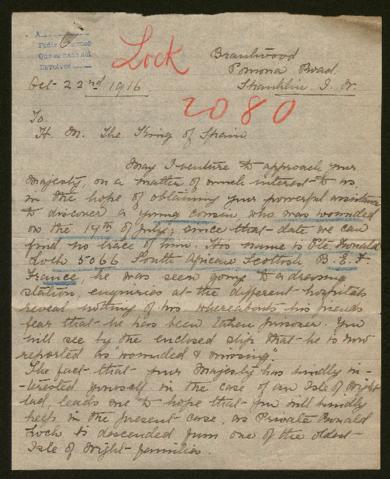 Lock
Brantwood
Pomona Road
Shanklin I. W.
Oct 22nd 1916
2080
To
H. M. The King of Spain
May I venture to approach your
Majesty, on a matter of much interest to us,
in the hope of obtaining your powerful assistance
to discover a young cousin, who was wounded
on the 19th of July; since that date we can
find no trace of him. His name is Pte Ronald
Loch 5066 South African Scottish B. E. F.
France, he was seen going to a dressing
station, enquiries at the different hospitals
reveal nothing of his whereabouts his friends
fear that he has been taken prisoner. You
will see by the enclosed slip that he is now
reported as wounded & missing.
The fact that your Majesty has kindly in-
terested yourself in the case of an Isle of Wight
lad, leads me to hope that you will kindly
help in the present case, as Private Ronald
Loch is descended from one of the oldest
Isle of Wight families.